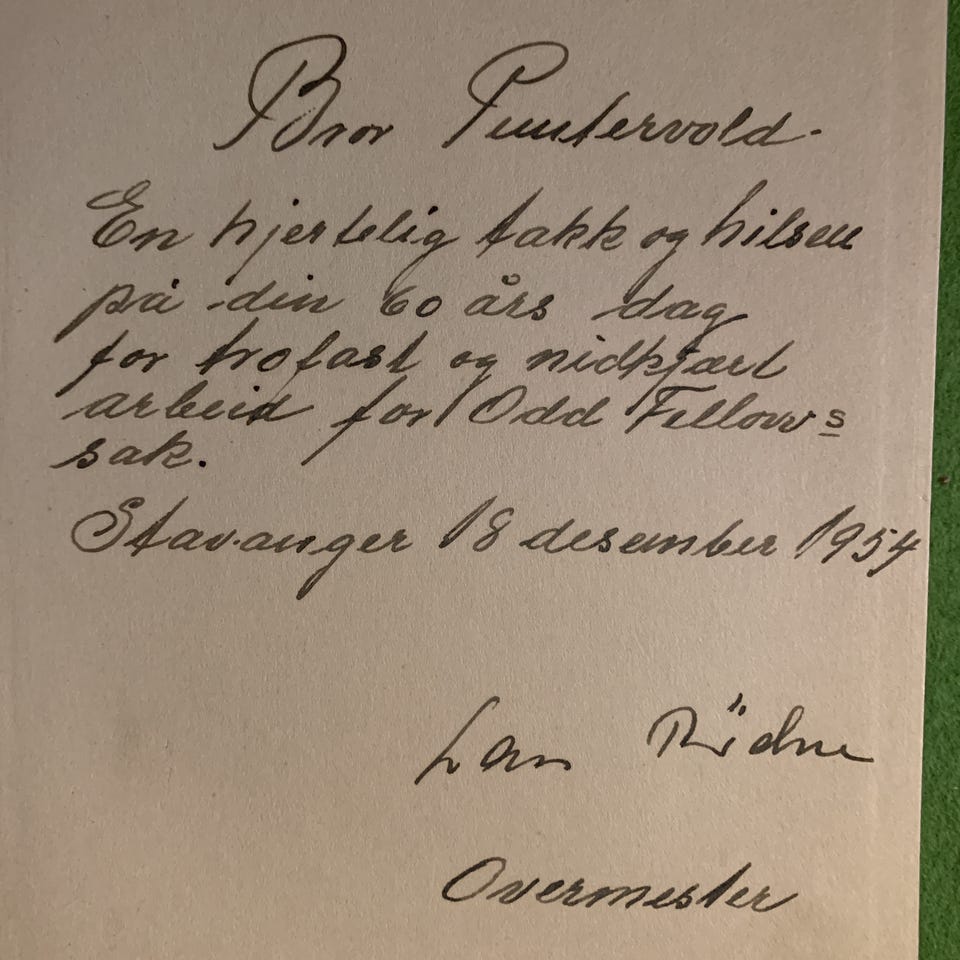 Bror Puntervold.
En hjertelig takk og hilsen
på din 60 års dag
for trofast og nidkjært
arbeid for Odd Fellows
sak.
Stavanger 18 desember 1954
Lars Rödne
Overmester